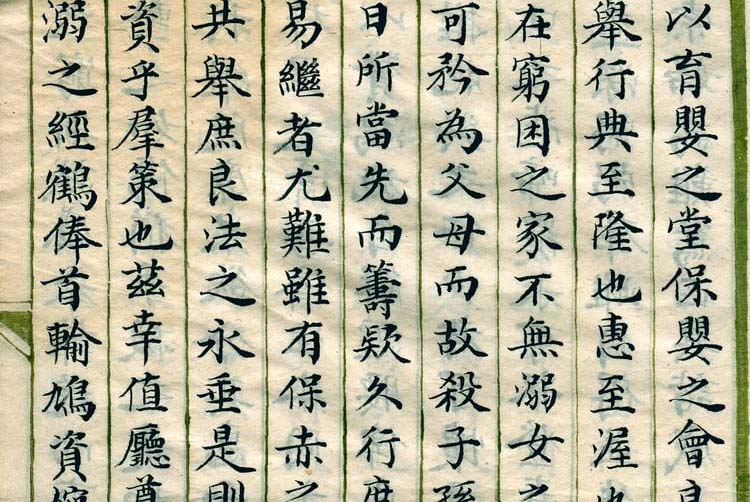 以育嬰之堂保嬰之會
舉行典至隆也惠至渥也
在窮困之家不無溺女之
可矜為父母而故殺子孫
日所當先而籌欵久行度
易繼者尤難雖有保赤之
共舉庶良法之永垂是則
資乎羣策也茲幸值廳尊
溺之經鶴俸首輸鳩資